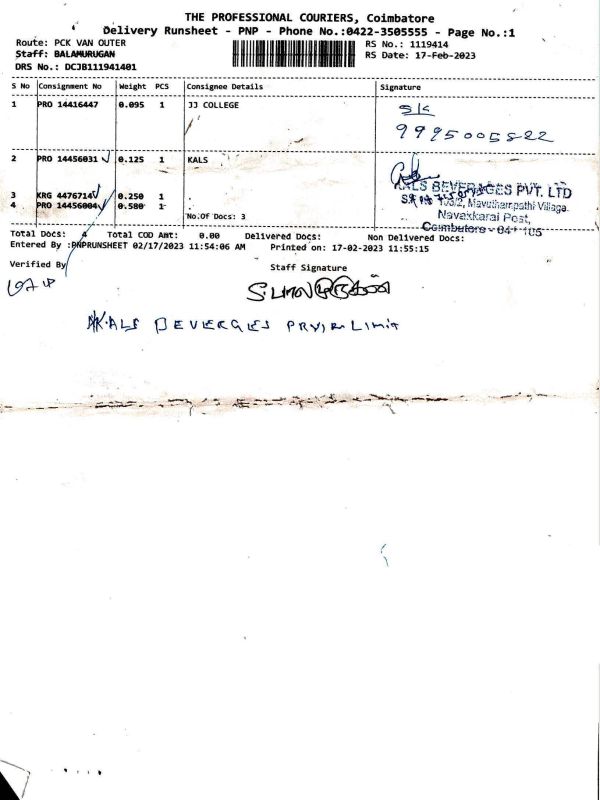 THE PROFESSIONAL COURIERS, Coimbatore
Delivery Runsheet - PNP - Phone No.:0422-3505555 - Page No.:1
Route: PCK VAN OUTER
RS No.: 1119414
Staff: BALAMURUGAN
RS Date: 17-Feb-2023
DRS No.: DCJB111941401
S No Consignment No Weight PCS Consignee Details Signature
1 PRO 14416447 0.095 1 JJ COLLEGE
SK
9995005822
2 PRO 14456031 0.125 1 KALS
KALS BEVERAGES PVT. LTD
S.F. No 173/2, Mavuthampathi Village.
Navakkarai Post,
Coimbatore - 641 105
3 KRG 4476714 0.250 1 .
4 PRO 14456004 0.580 1 .
No.Of Docs: 3
Total Docs: 4 Total COD Amt: 0.00 Delivered Docs: Non Delivered Docs:
Entered By :PNPRUNSHEET 02/17/2023 11:54:06 AM Printed on: 17-02-2023 11:55:15
Verified By
Staff Signature
KALS BEVERGES